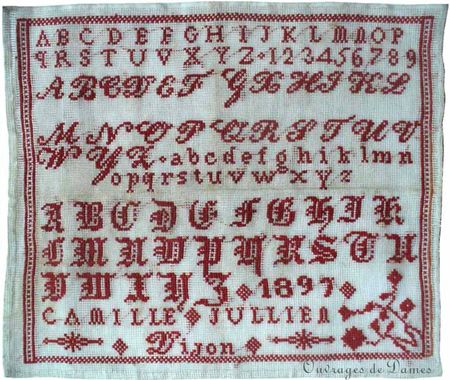 A B C D E F G H I J K L M N O P
q R S T U V X Y Z · 1 2 3 4 5 6 7 8 9
A B C D E F G H I K L
M N O P Q R S T U V
W Y Z · a b c d e f g h i k l m n
o p q r s t u v w x y z
A B C D E F G H I K
L M N O P Q R S T U
V W X Y Z 1897
CAMILLE JULLIEN
Dijon
Ouvrages de Dames